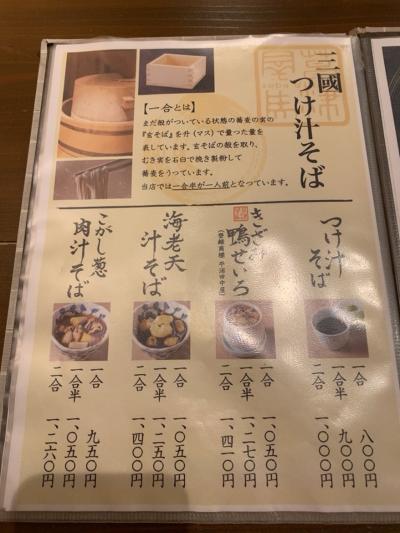 三國
つけ汁そば
【一合とは】
まだ殻がついている状態の蕎麦の実の
『玄そば』を升（マス）で量った量を
表しています。玄そばの殻を取り、
むき実を石臼で挽き製粉して
蕎麦をうっています。
当店では一合半が一人前となっています。
つけ汁
そば
一合 八〇〇円
一合半 九〇〇円
二合 一、〇〇〇円
きざみ
鴨せいろ
一合 一、〇五〇円
一合半 一、二七〇円
二合 一、四一〇円
海老天
汁そば
一合 一、〇五〇円
一合半 一、二五〇円
二合 一、四〇〇円
こがし葱
肉汁そば
一合 九五〇円
一合半 一、〇五〇円
二合 一、二六〇円